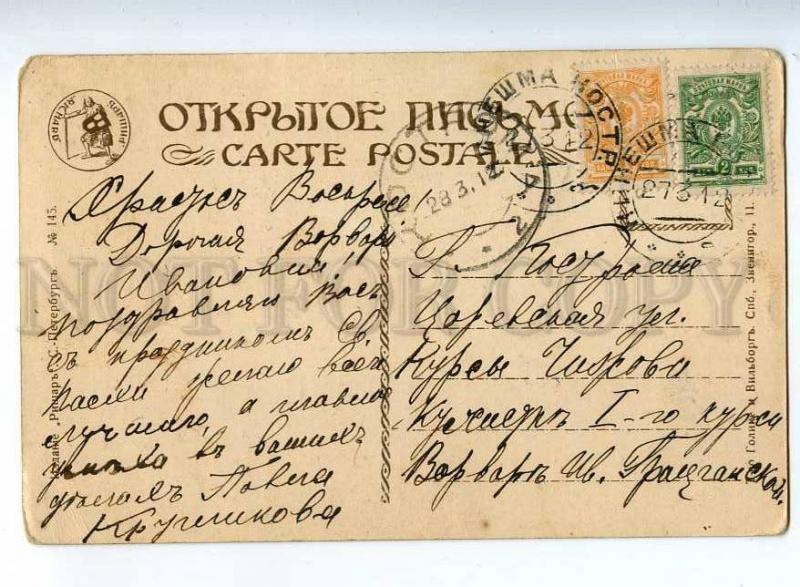 ОТКРЫТОЕ ПИСЬМО
CARTE POSTALE
РИШАРЪ RICHARD
КИНЕШМА КОСТР.
27 3 12
28.3.12
ПОЧТОВАЯ МАРКА
2
Христосъ Воскресе!
Дорогая Варвара
Ивановна,
поздравляю Васъ
съ праздникомъ Св.
Пасхи желаю всего
лучшаго, а главное
въ вашихъ
Павла
Кругликова
Г. Кострома
Царевская ул.
Курсы Чижова
I-го курса
Варваръ Ив.
Изданіе „Ришаръ", С.-Петербургъ. № 145.
Голике и Вильборгъ. Спб., Звенигор., 11.
NOT FOR COPY